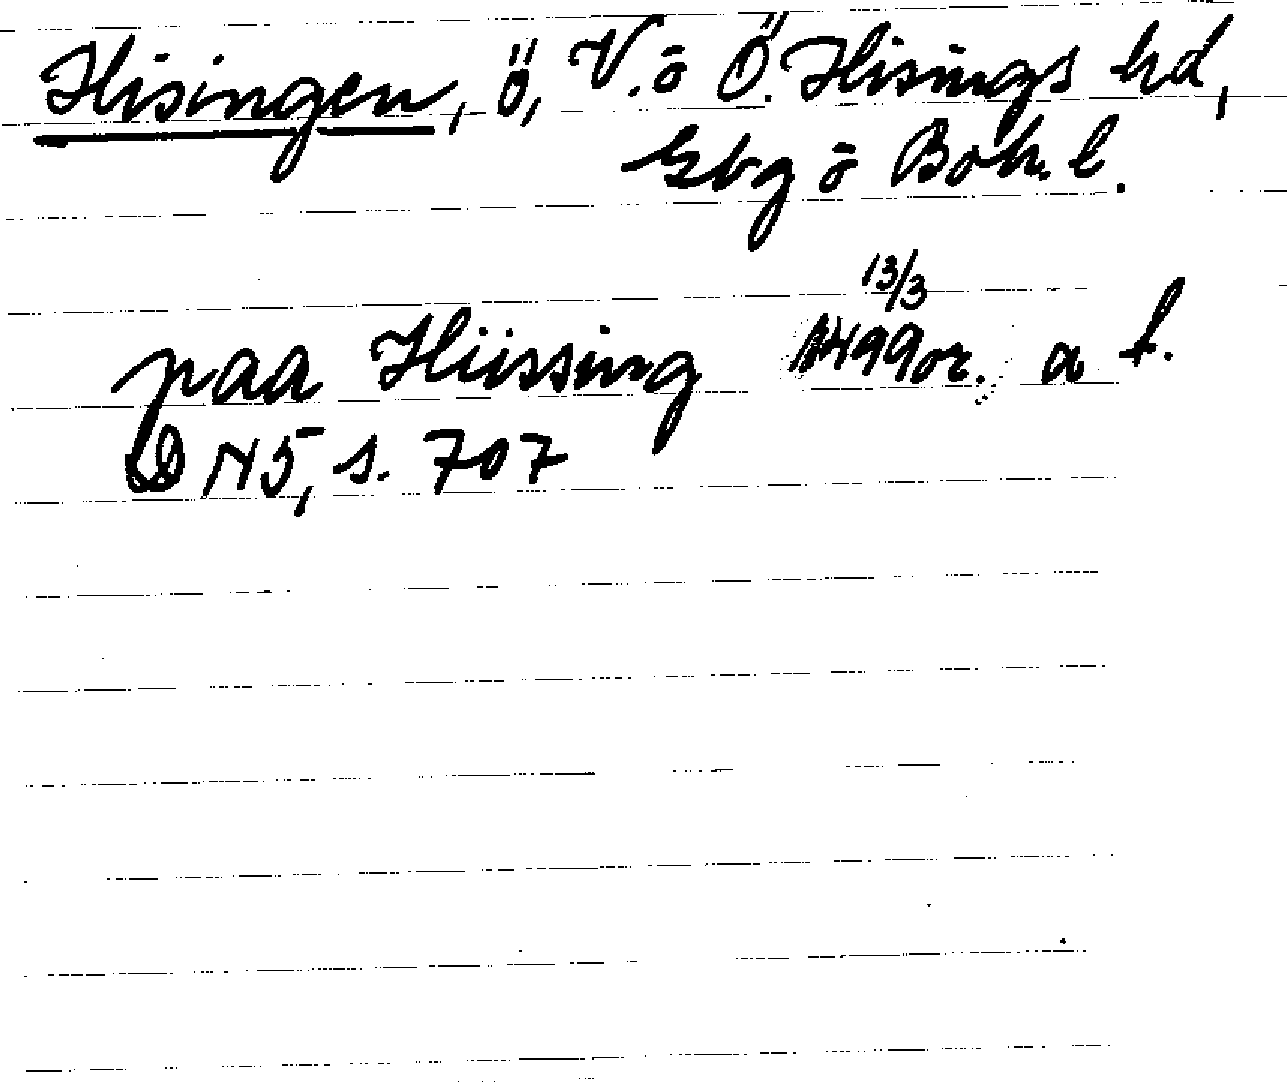 Hisingen, ö, V. o Ö. Hisings hd,
Gbg o Boh. l.
paa Hiissing 13/3 1499 or. a f.
DN 5, s. 707